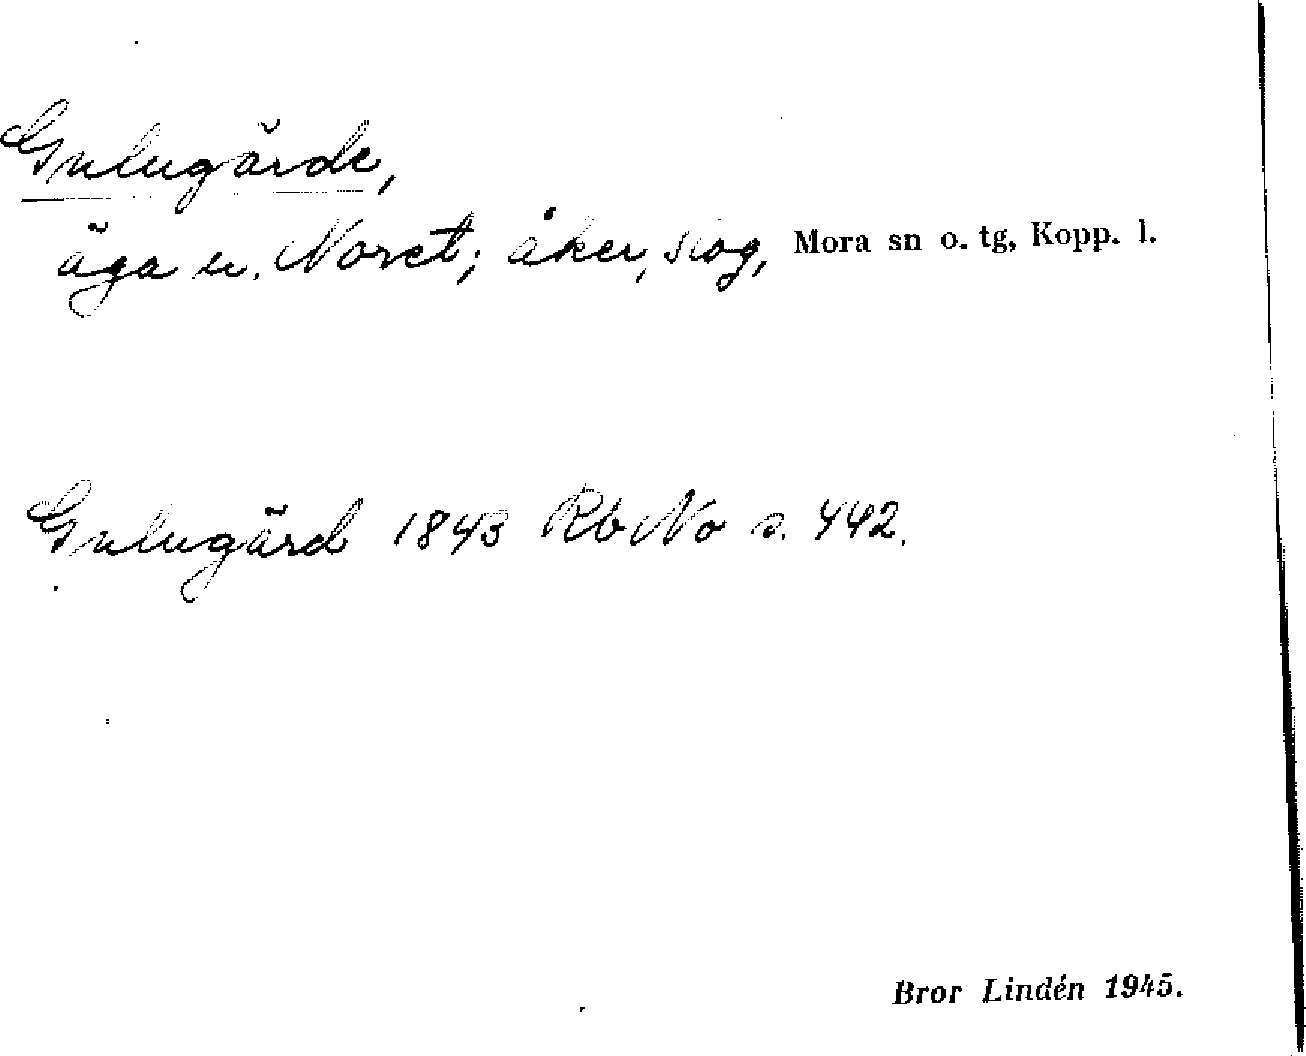 Gulugärde,
äga u. Noret; åker, skog, Mora sn o. tg, Kopp. l.
Gulugärd 1843 Rb No s. 442.
Bror Lindén 1945.